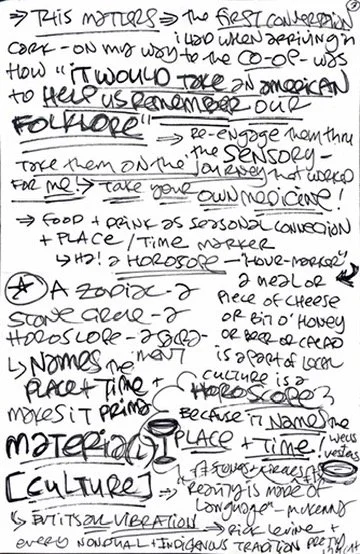 ⇒ THIS MATTERS ⇒ the FIRST CONVERSATION
I HAD WHEN ARRIVING IN
CORK - ON MY WAY TO the CO-OP - WAS
HOW "IT WOULD TAKE AN AMERICAN
TO HELP US REMEMBER OUR
FOLKLORE"
⇒ RE-ENGAGE THEM THRU
the SENSORY -
TAKE THEM ON the JOURNEY that WORKED
FOR ME! ↳ TAKE YOUR OWN MEDICINE!
⇒ FOOD + DRINK AS SEASONAL CONNECTION
+ PLACE / TIME MARKER
↳ HA! a HOROSCOPE - "HOUR-MARKER"
A ZODIAC - a
STONE CIRCLE - a
HOROSCOPE - a SACRA-
MENT
↳ NAMES the
PLACE + TIME +
MAKES IT PRIMA
MATERIA(L)!
[CULTURE]
a MEAL or
PIECE OF CHEESE
OR BIT O' HONEY
OR BEER OR CACAO
IS A PART OF LOCAL
CULTURE IS A
HOROSCOPE
BECAUSE IT NAMES the
PLACE + TIME!
⇒ "REALITY IS MADE OF
LANGUAGE" - MCKENNA
↳ BUT ITS all VIBRATION ⇒ RICK LEVINE +
EVERY NONDUAL + INDIGENOUS TRADITION PRETTY